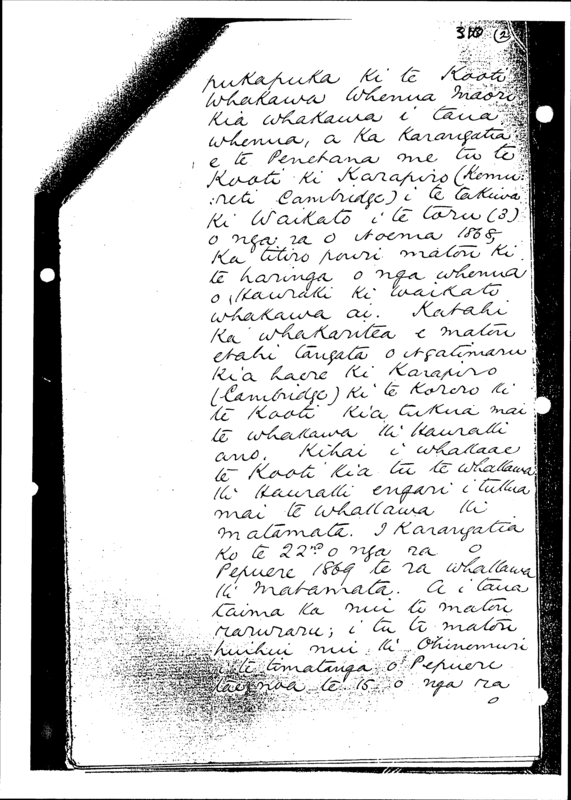 310 (2)
pukapuka ki te Kooti
Whakawa Whenua Maori
Kia whakawa i taua
whenua, a ka Karangatia
e te Penetana me tu te
Kooti ki Karapiro (Kemu:
:reti Cambridge) i te takiwa
ki Waikato i te toru (3)
o nga ra o Noema 1868,
Ka titiro pouri matou ki
te haringa o nga whenua
o Hauraki ki Waikato
whakawa ai. Katahi
Ka whakaritea e matou
etahi tangata o Ngatimaru
kia haere ki Karapiro
(Cambridge) ki te Korero ki
te Kooti kia tukua mai
te whakawa ki Hauraki
ano. Kihai i whakaae
te Kooti kia tu te whakawa
ki Hauraki engari i tukua
mai te whakawa ki
Matamata. I Karangatia
ko te 22nd o nga ra o
Pepuere 1869 te ra whakawa
ki Matamata. A i taua
taima ka nui te matou
raruraru; i tu te matou
huihui nui ki Ohinemuri
i te timatanga o Pepuere
tae noa te 15 o nga ra
o